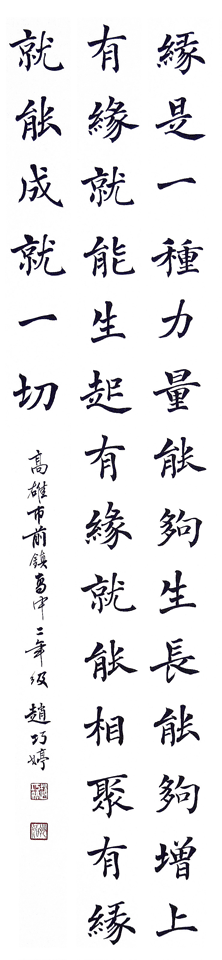 緣是一種力量能夠生長能夠增上
有緣就能生起有緣就能相聚有緣
就能成就一切
高雄市前鎮高中二年級 趙巧婷